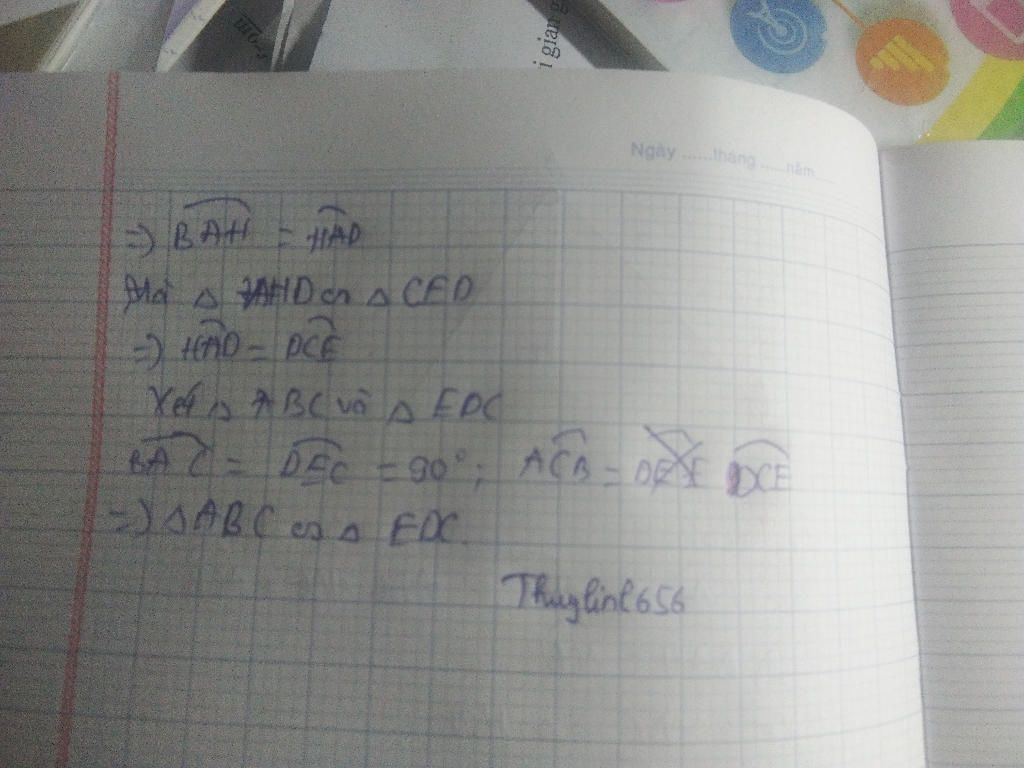 i gian g
Ngày ......tháng .....năm....
=> BAH = HAD
Mà △ AHD ∽ △ CED
=> HAD = DCE
Xét △ ABC và △ EDC
BAC = DEC = 90°; ACB = DCE
=> △ ABC ∽ △ EDC.
Thuylinh656